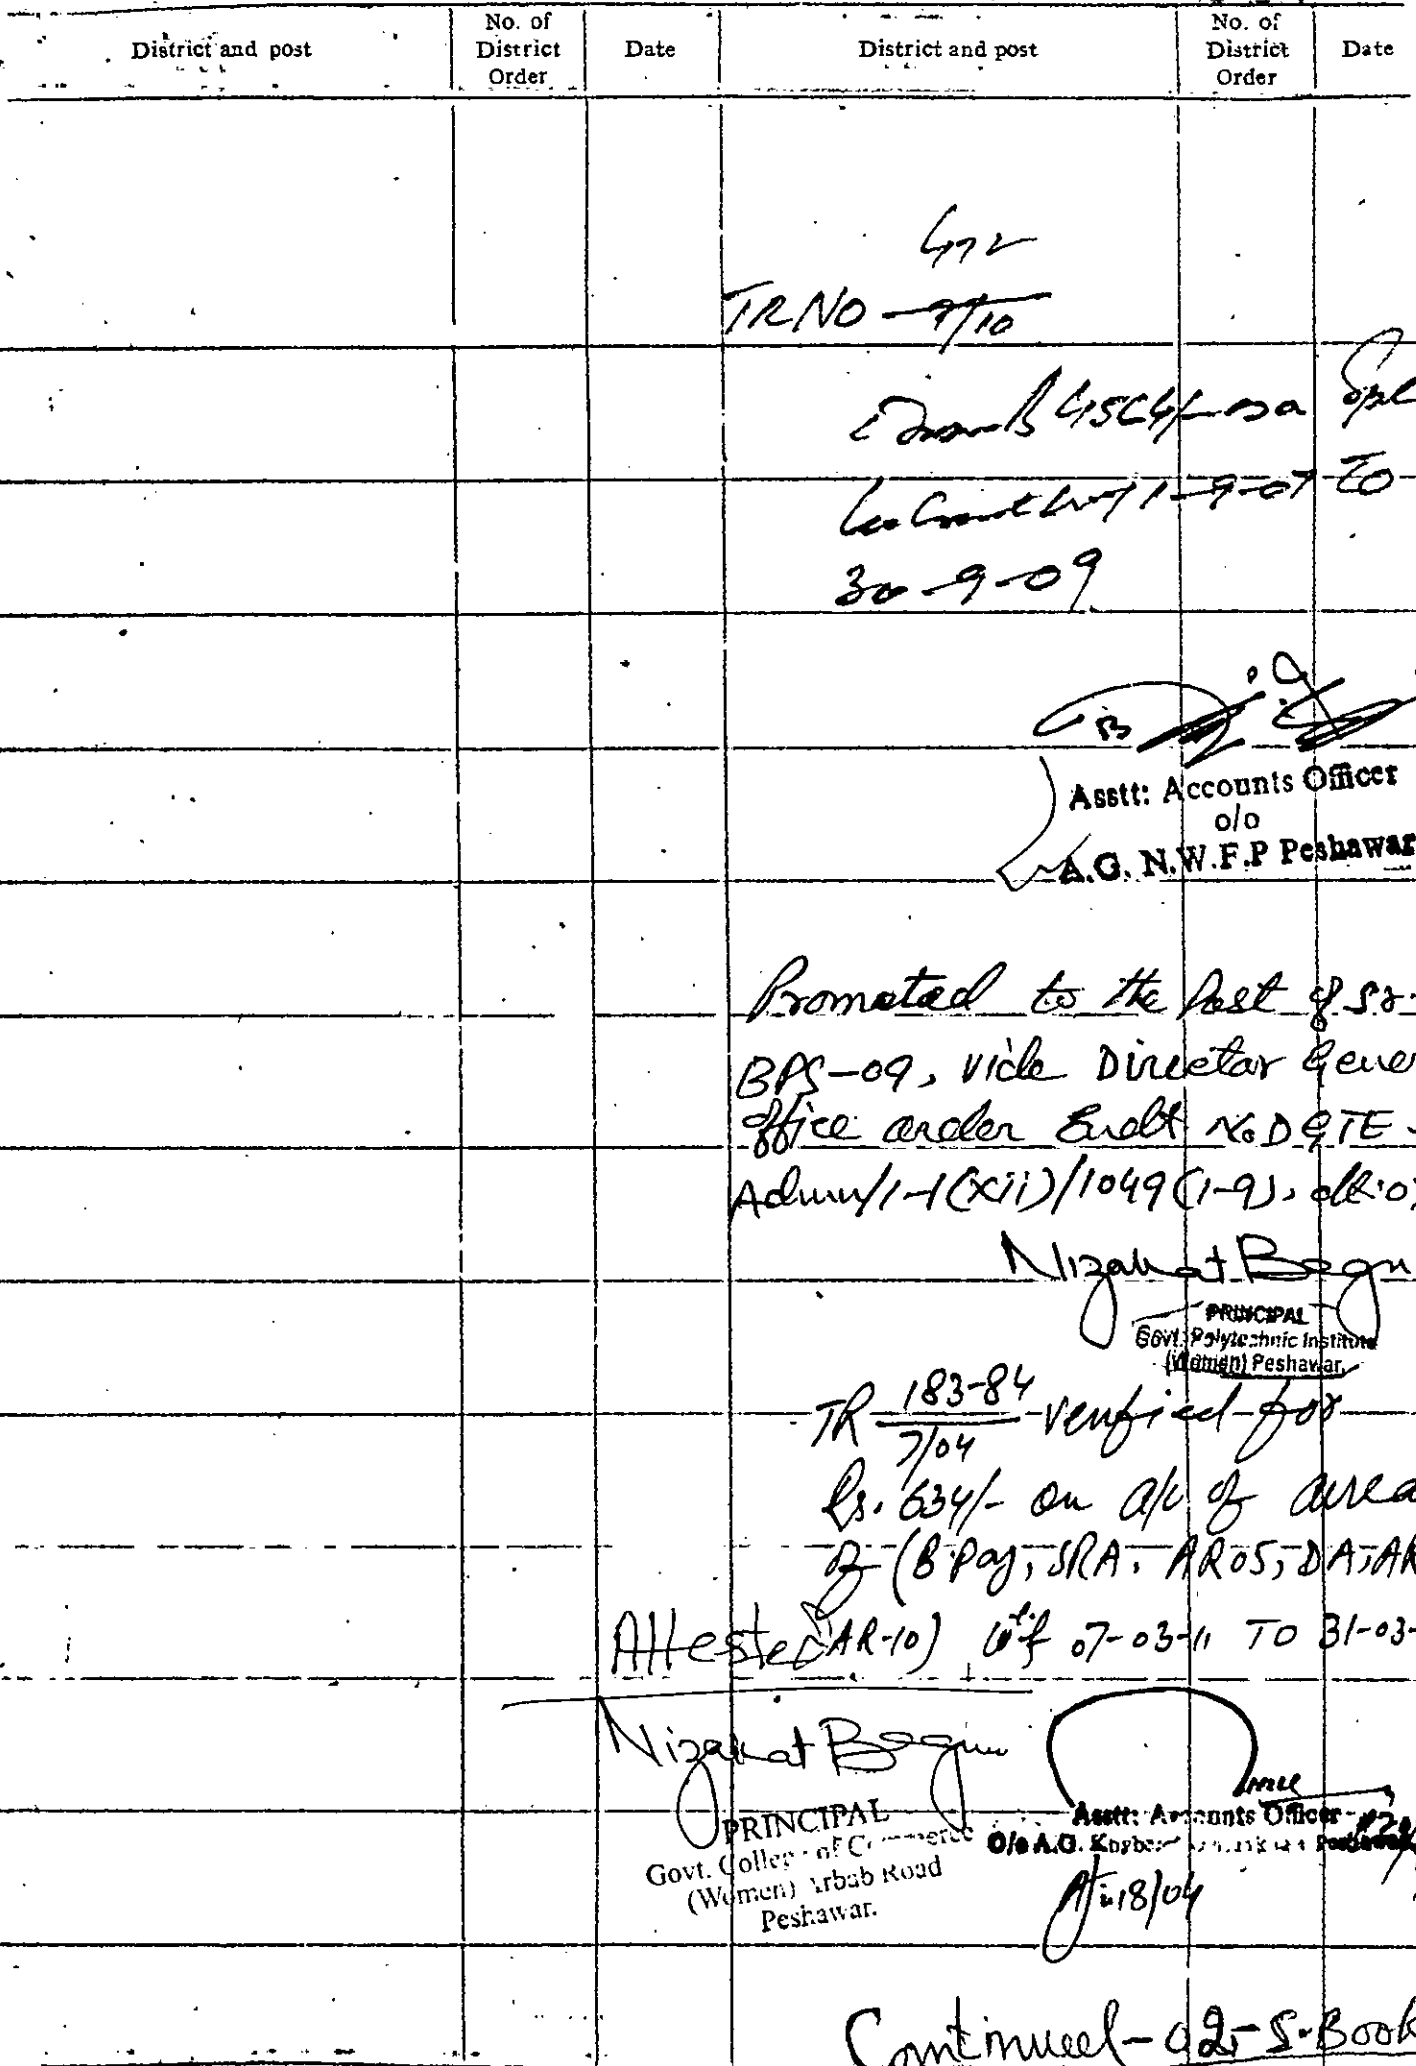 District and post
No. of
District
Order
Date
District and post
No. of
District
Order
Date
472
TR NO 9/10
Spl
1-9-07 TO
30-9-09
Asstt: Accounts Officer
o/o
A.G. N.W.F.P Peshawar
Promoted to the Post of Sr.
BPS-09, vide Director Gener
office order Endt No DGTE-
Admn/1-1(xii)/1049(1-9), dt:
Nizakat Begu
PRINCIPAL
Govt: Polytechnic Institute
(Women) Peshawar.
TR 183-84 verified for
7/04
Rs. 634/- on a/c of area
of (B Pay, SRA, AR05, DA, AR
Attested AR-10) wef 07-03-11 TO 31-03-
Nizakat Begum
PRINCIPAL
Govt. College of Commerce
(Women) Arbab Road
Peshawar.
Asstt: Accounts Officer
O/o A.G. Khyber Peshawar
18/04
Continued-02-S.Book